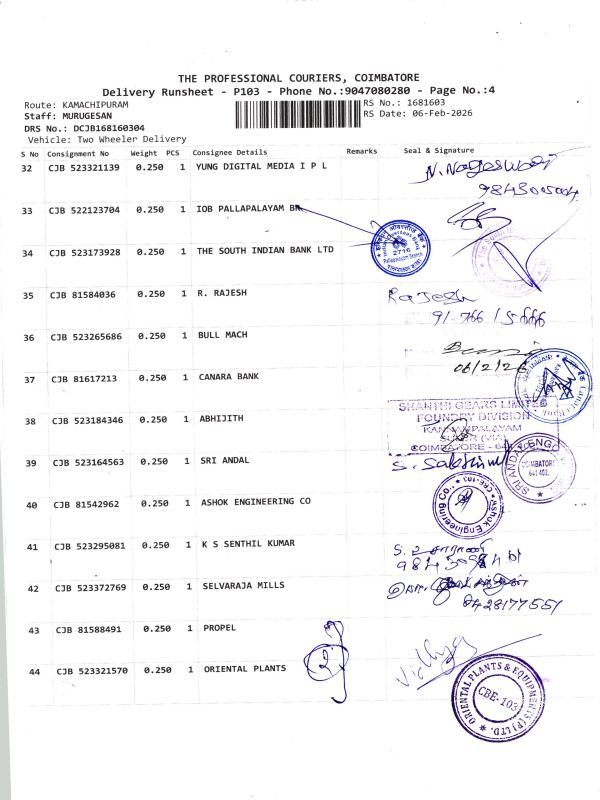 THE PROFESSIONAL COURIERS, COIMBATORE
Delivery Runsheet - P103 - Phone No.:9047080280 - Page No.:4
Route: KAMACHIPURAM
RS No.: 1681603
Staff: MURUGESAN
RS Date: 06-Feb-2026
DRS No.: DCJB168160304
Vehicle: Two Wheeler Delivery
S No Consignment No Weight PCS Consignee Details Remarks Seal & Signature
32 CJB 523321139 0.250 1 YUNG DIGITAL MEDIA I P L N. Nageswari
33 CJB 522123704 0.250 1 IOB PALLAPALAYAM
2716
34 CJB 523173928 0.250 1 THE SOUTH INDIAN BANK LTD
35 CJB 81584036 0.250 1 R. RAJESH Rajesh
36 CJB 523265686 0.250 1 BULL MACH
06/2/26
37 CJB 81617213 0.250 1 CANARA BANK
SHANTHI GEARS LIMITED
FOUNDRY DIVISION
KANNAMPALAYAM
38 CJB 523184346 0.250 1 ABHIJITH
SULUR (VIA)
COIMBATORE - 641
39 CJB 523164563 0.250 1 SRI ANDAL
COIMBATORE
641 402.
40 CJB 81542962 0.250 1 ASHOK ENGINEERING CO
Ashok Engineering Co., CBE-103
41 CJB 523295081 0.250 1 K S SENTHIL KUMAR
42 CJB 523372769 0.250 1 SELVARAJA MILLS
8428177551
43 CJB 81588491 0.250 1 PROPEL
44 CJB 523321570 0.250 1 ORIENTAL PLANTS Vidhya
ORIENTAL PLANTS & EQUIPMENTS (P) LTD.
CBE-103